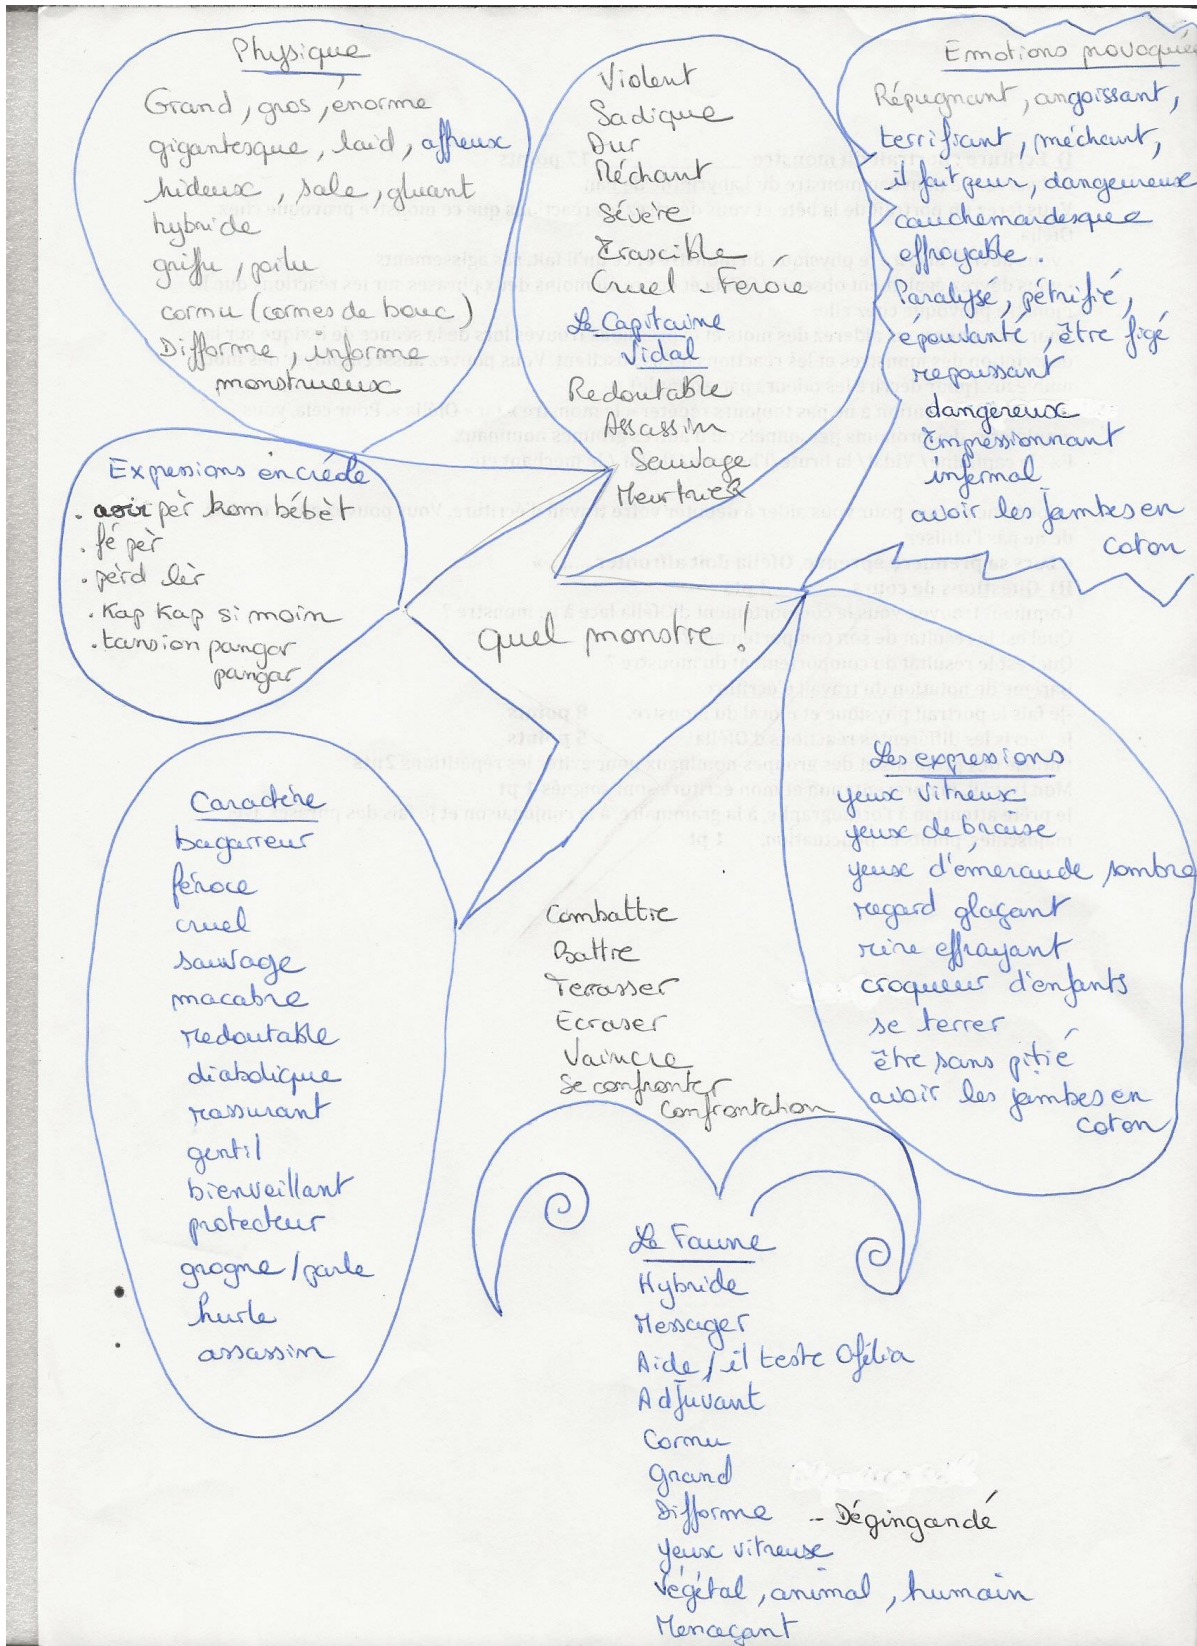 Physique
Grand, gros, énorme
gigantesque, laid, affreux
hideux, sale, gluant
hybride
griffu, poilu
cornu (cornes de bouc)
Difforme, informe
monstrueux
Violent
Sadique
Dur
Méchant
Sévère
Irascible
Cruel - Féroce
Le Capitaine
Vidal
Redoutable
Assassin
Sauvage
Meurtrier
Emotions provoquées
Répugnant, angoissant,
terrifiant, méchant,
il fait peur, dangeureux
cauchemardesque
effroyable.
Paralysé, pétrifié,
epouvanté, être figé
repoussant
dangereux
Impressionnant
infernal
avoir les jambes en
coton
Expressions en créole
. avoir pèr kom bébèt
. fé pèr
. pèrd lèr
. Kap Kap si moin
. tansion pangar
pangar
quel monstre !
Caractère
bagarreur
féroce
cruel
sauvage
macabre
redoutable
diabolique
rassurant
gentil
bienveillant
protecteur
grogne / parle
hurle
assassin
Combattre
Battre
Terrasser
Ecraser
Vaincre
Se confronter
Confrontation
Les expressions
yeux vitreux
yeux de braise
yeux d'émeraude sombre
regard glaçant
rire effrayant
croqueur d'enfants
se terrer
être sans pitié
avoir les jambes en
coton
Le Faune
Hybride
Messager
Aide / il teste Ofélia
Adjuvant
Cornu
Grand
Difforme -- Dégingandé
Yeux vitreux
Végétal, animal, humain
Menaçant